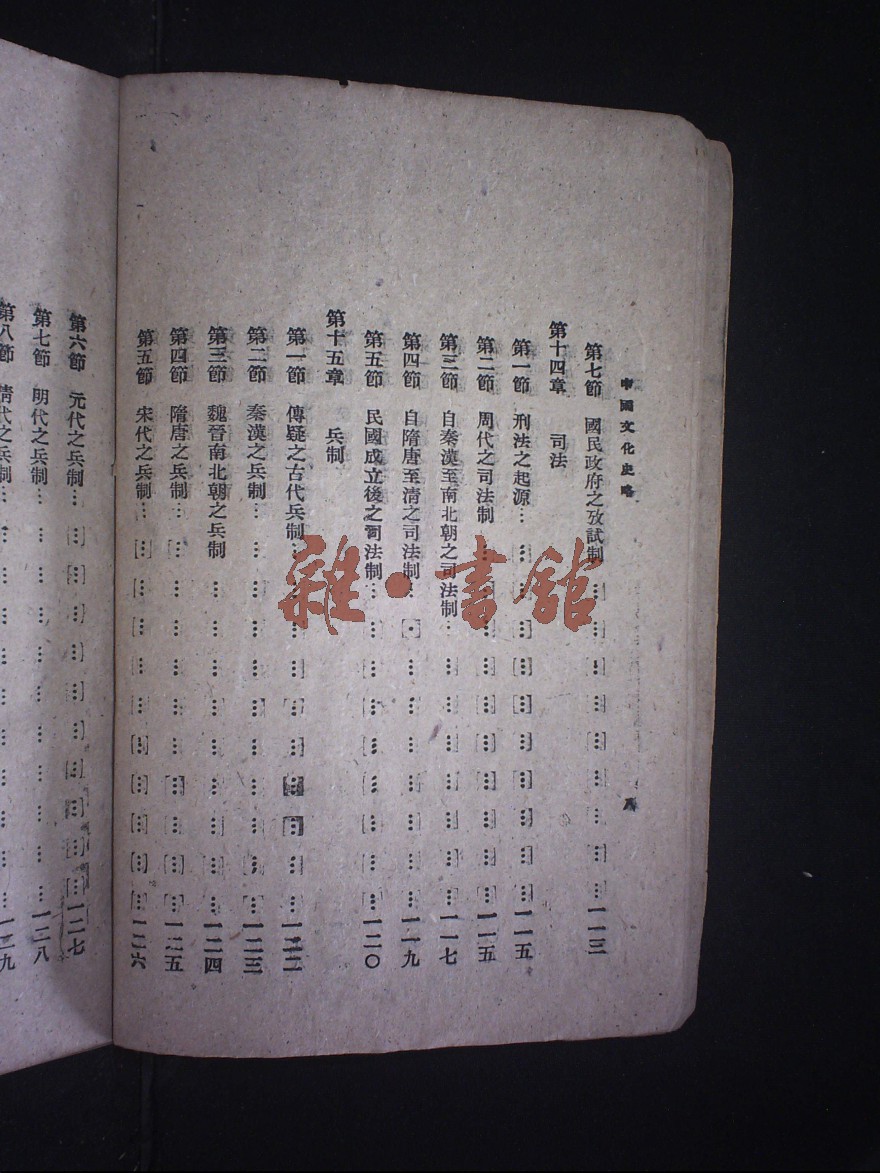 中國文化史略
八
第七節 國民政府之攷試制……一一三
第十四章 司法
第一節 刑法之起源……一一五
第二節 周代之司法制……一一五
第三節 自秦漢至南北朝之司法制……一一七
第四節 自隋唐至清之司法制……一一九
第五節 民國成立後之司法制……一二〇
第十五章 兵制
第一節 傳疑之古代兵制……一二二
第二節 秦漢之兵制……一二三
第三節 魏晉南北朝之兵制……一二四
第四節 隋唐之兵制……一二五
第五節 宋代之兵制……一二六
第六節 元代之兵制……一二七
第七節 明代之兵制……一二八
第八節 清代之兵制……一二九
雜·書館